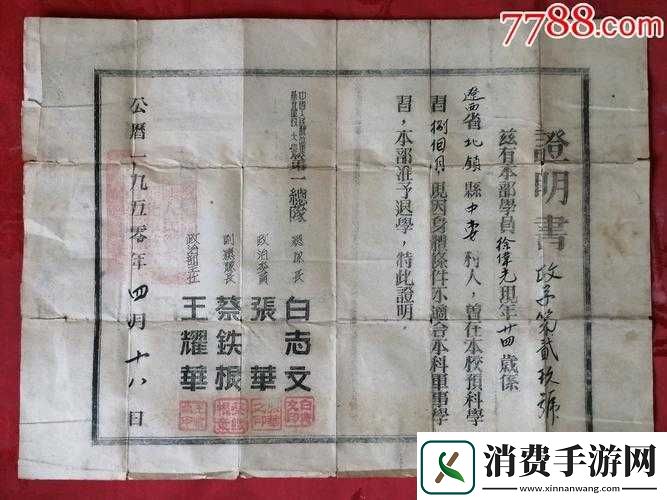 證明書
政字第貳玖號
茲有本部學員徐偉光現年廿四歲係
遼西省北鎮縣中安村人，曾在本校預科學
習捌個月現因身體條件不適合本科軍事學
習，本部准予退學，特此證明。
第一總隊
總隊長 白志文
政治委員 張華
副總隊長 蔡鉄根
政治部主任 王耀華
公曆一九五零年四月十八日
7788.com
消费手游网
www.xinnanwang.com